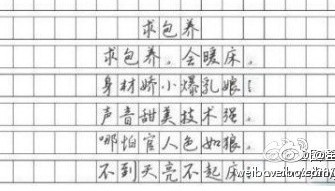 求包养
求包养，会暖床。
身材娇小爆乳娘！
声音甜美技术强。
哪怕官人色如狼。
不到天亮不起床！